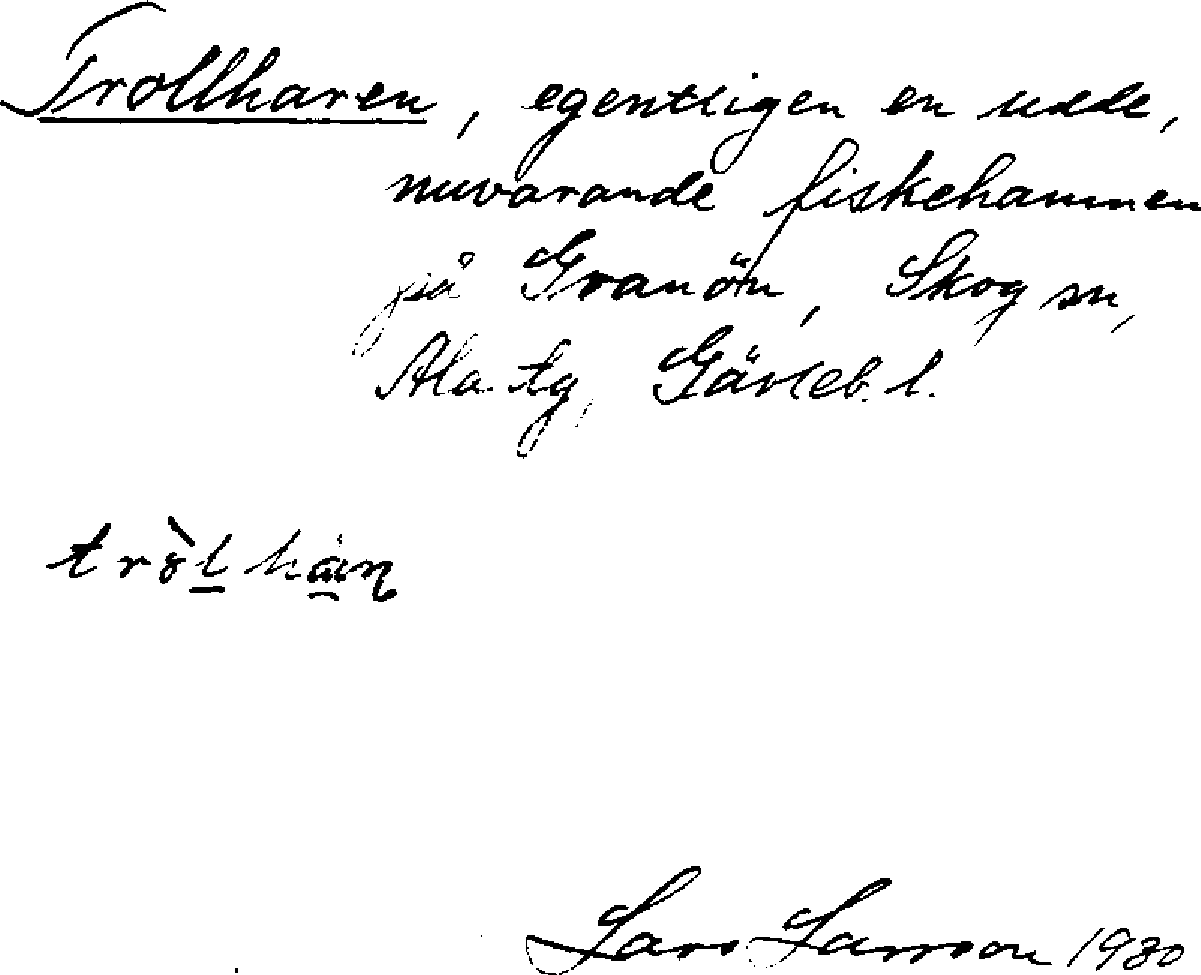 Trollharen, egentligen en udde,
nuvarande fiskehamnen
på Granön, Skog sn,
Ala tg, Gävleb. l.
Lars Larsson 1980